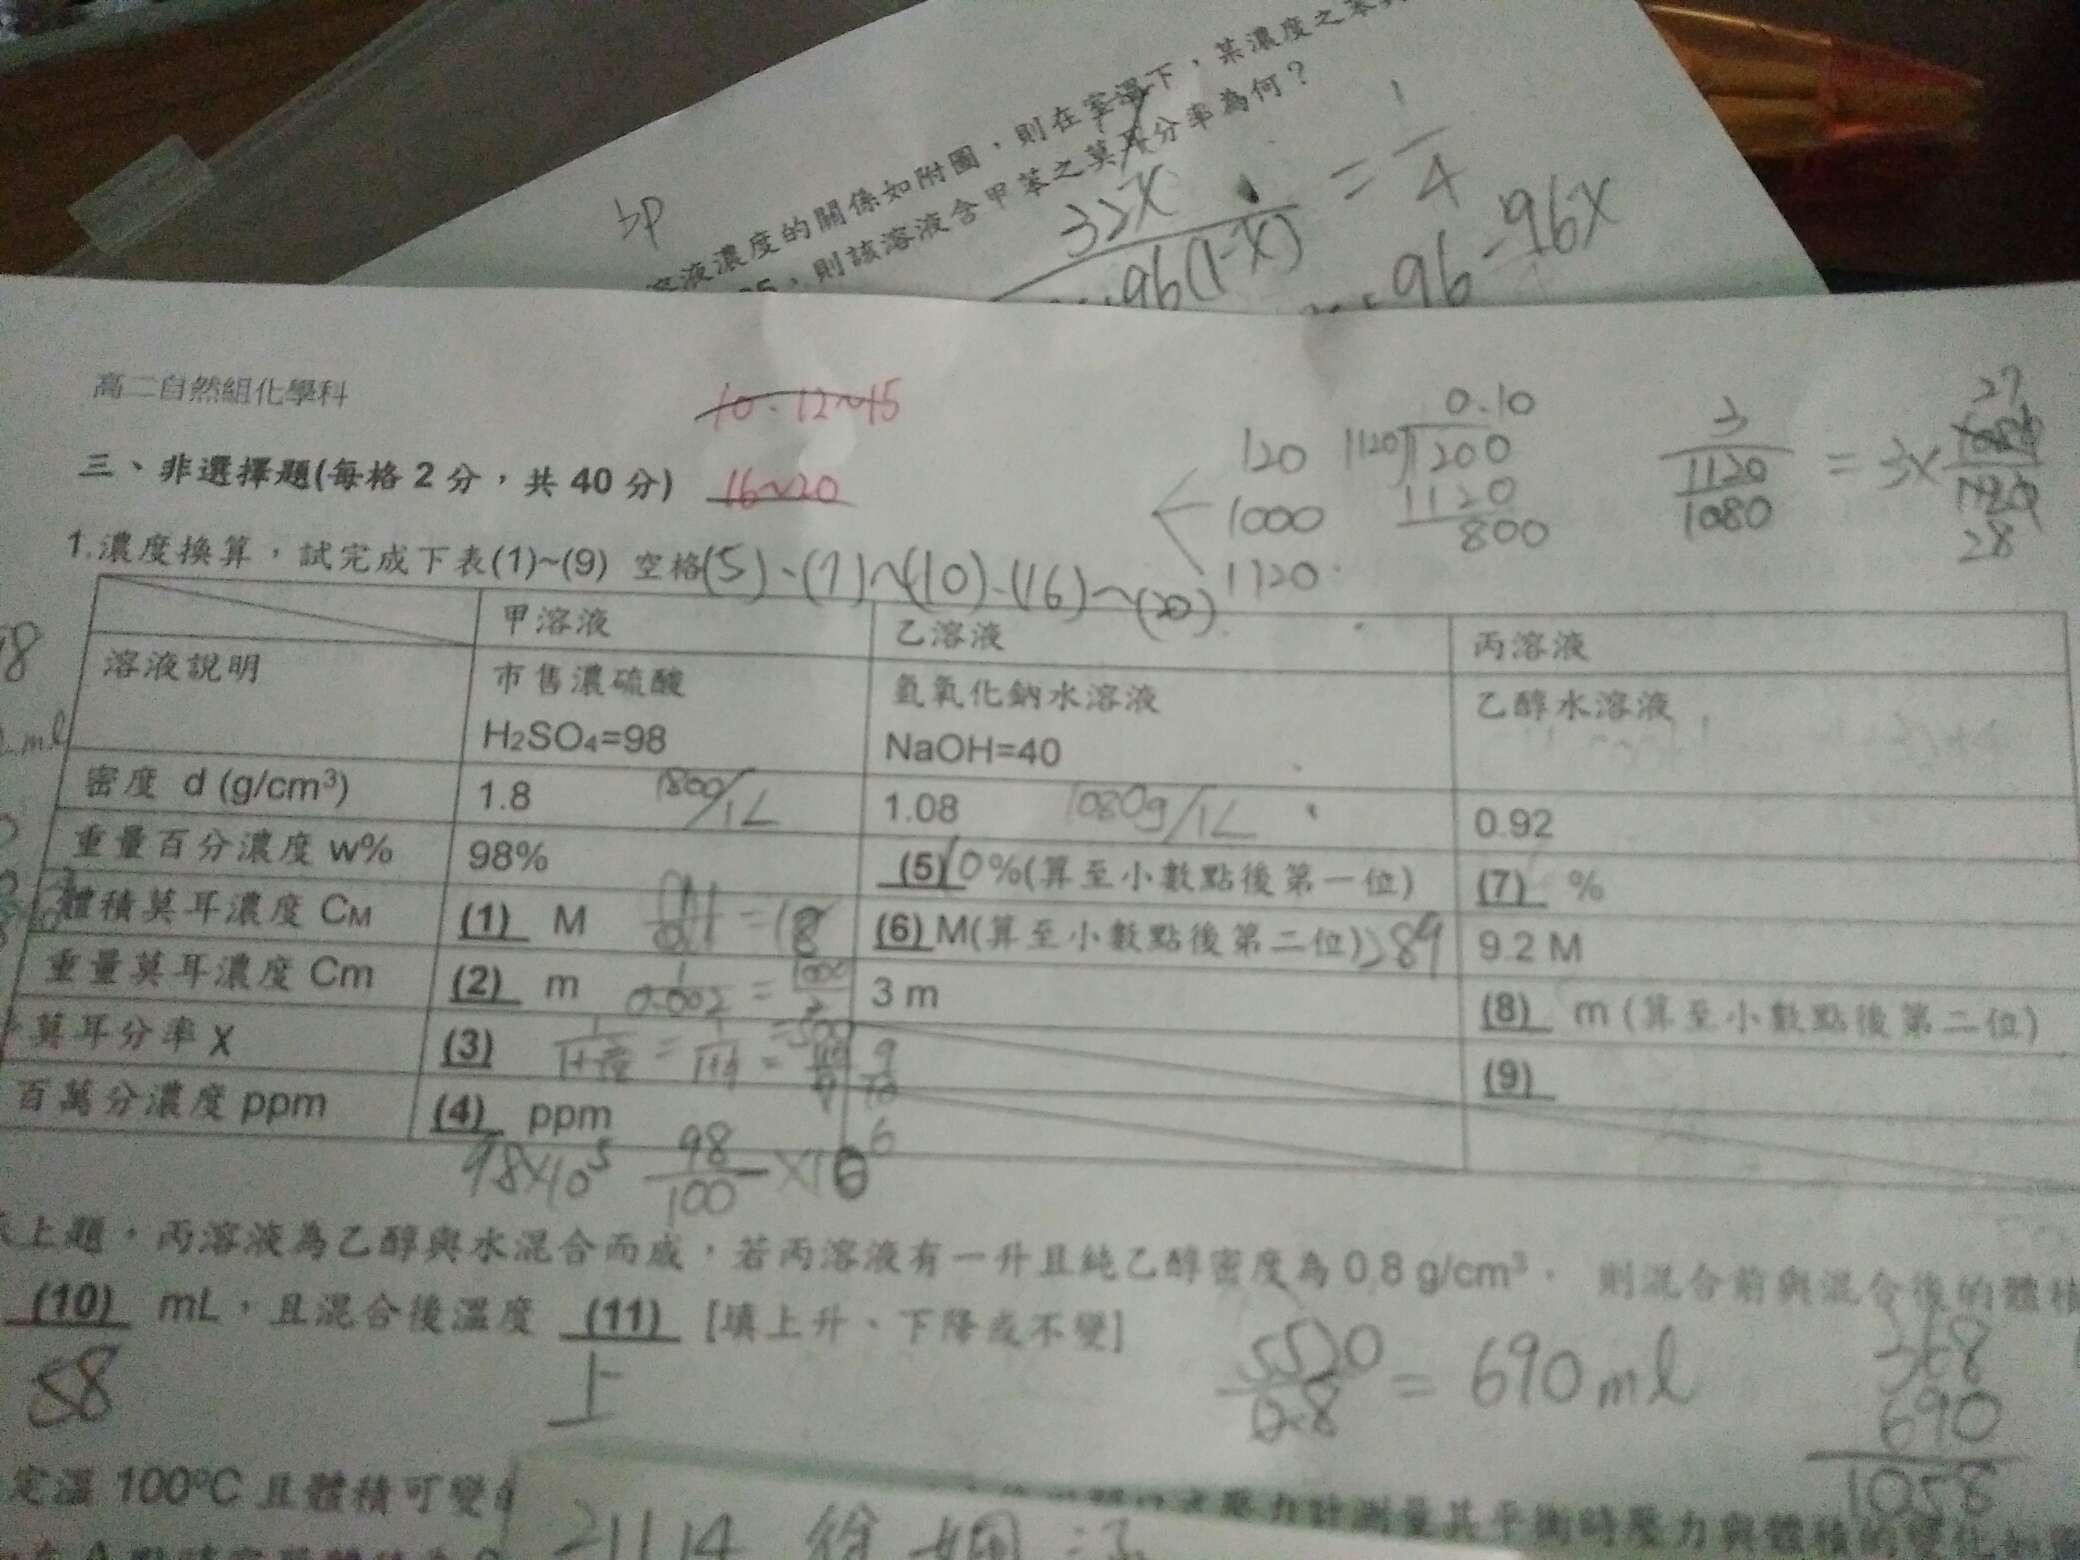 溶液濃度的關係如附圖，則在室溫下，某濃度之苯
，則該溶液含甲苯之莫耳分率為何？
高二自然組化學科
10、12~15
三、非選擇題(每格 2 分，共 40 分) 16~20
120
1000
1120
0.10
1120 1200
1120
800
1.濃度換算，試完成下表(1)~(9) 空格(5)、(7)~(10)、(16)~(20)
甲溶液 乙溶液 丙溶液
溶液說明 市售濃硫酸 氫氧化鈉水溶液 乙醇水溶液
H2SO4=98 NaOH=40
密度 d (g/cm3) 1.8 1800/1L 1.08 1080g/1L 0.92
重量百分濃度 w% 98% (5) 10%(算至小數點後第一位) (7) %
體積莫耳濃度 CM (1) M (6) M(算至小數點後第二位) 289 9.2 M
重量莫耳濃度 Cm (2) m 3 m (8) m (算至小數點後第二位)
莫耳分率 X (3) (9)
百萬分濃度 ppm (4) ppm
98×10^5 98/100 ×10^6
上題，丙溶液為乙醇與水混合而成，若丙溶液有一升且純乙醇密度為 0.8 g/cm3， 則混合前與混合後的體積
(10) mL，且混合後溫度 (11) [填上升、下降或不變]
58 上
= 690 ml
368
690
1058
定溫 100ºC 且體積可變
力計測量其平衡時壓力與體積的變化如
21114